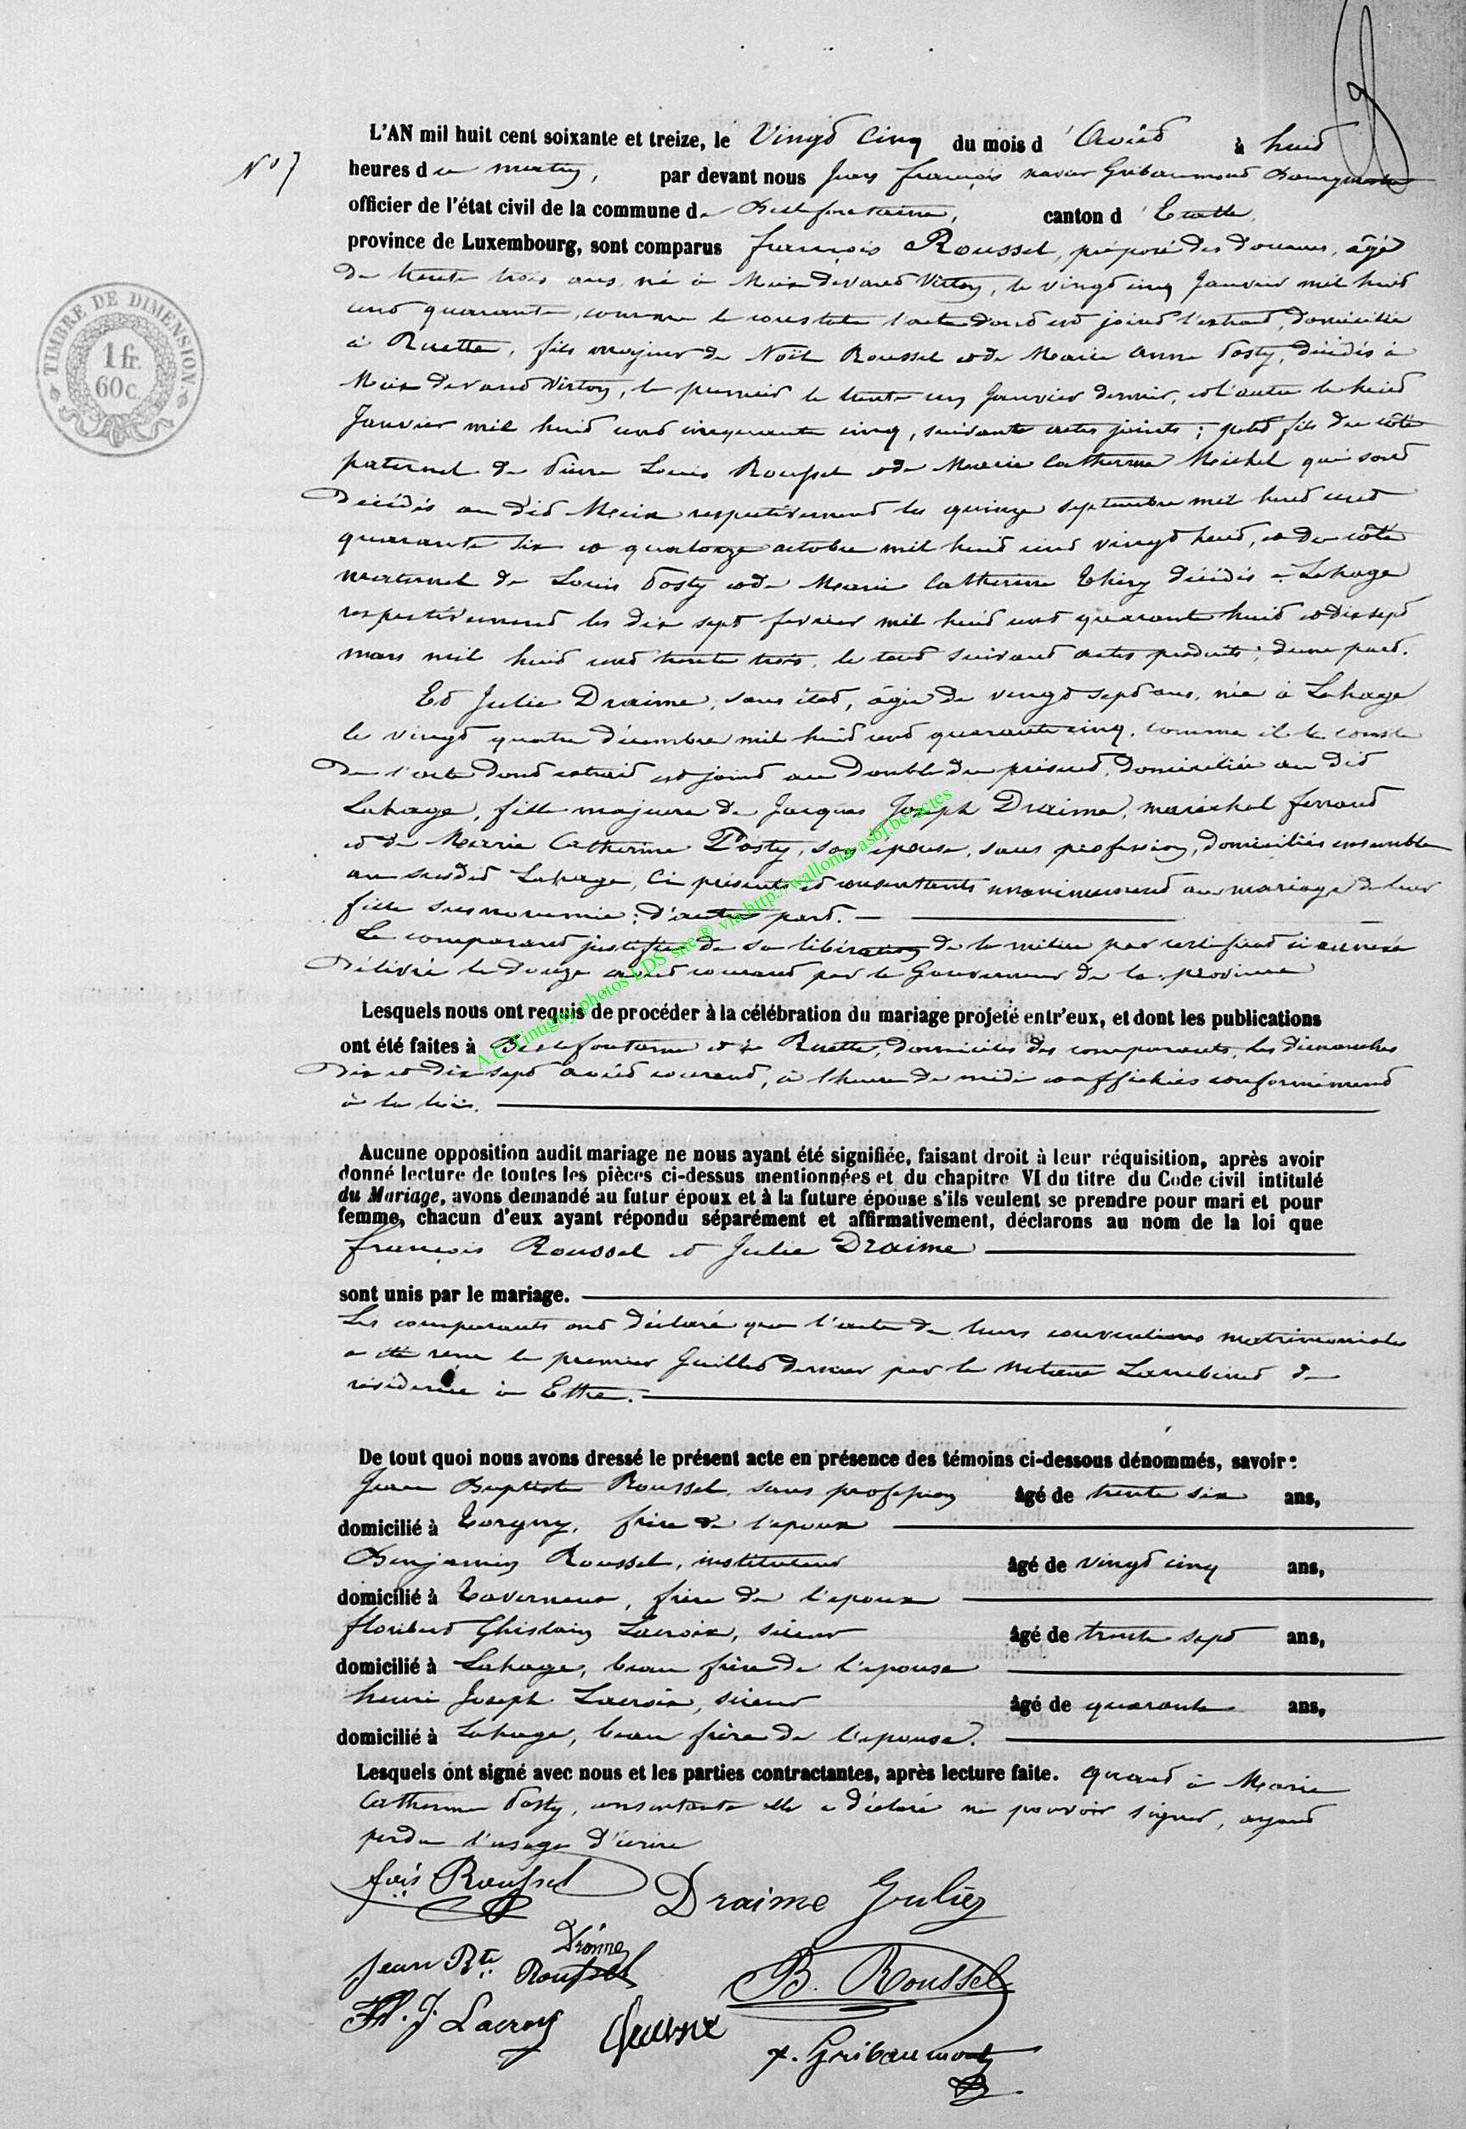 L'AN mil huit cent soixante et treize, le Vingt cinq du mois d'Avril à huit
N° 7
heures du matin, par devant nous Jean françois xavier Gribaumont Bourgmestre
officier de l'état civil de la commune de Bellefontaine, canton d'Etalle,
province de Luxembourg, sont comparus françois Roussel, préposé des douanes, âgé
de trente trois ans, né à Meix devant Virton, le vingt cinq Janvier mil huit
cent quarante, comme le constate l'acte dont est joint l'extrait, domicilié
à Ruette, fils majeur de Noël Roussel et de Marie Anne Posty, décédés à
Meix devant Virton, le premier le trente un Janvier dernier, et l'autre le huit
Janvier mil huit cent cinquante cinq, suivants actes joints ; petit fils du côté
paternel de Pierre Louis Roussel et de Marie Catherine Michel qui sont
décédés au dit Meix respectivement les quinze septembre mil huit cent
quarante six et quatorze octobre mil huit cent vingt huit, et du côté
maternel de Louis Posty et de Marie Catherine Thiry décédés à Lahage
respectivement les dix sept fevrier mil huit cent quarante huit et dix sept
mars mil huit cent trente trois, le tout suivant actes produits ; d'une part.
Et Julie Draime, sans état, âgée de vingt sept ans, née à Lahage
le vingt quatre décembre mil huit cent quarante cinq, comme il le conste
de l'acte dont extrait est joint au double du présent, domiciliée au dit
Lahage, fille majeure de Jacques Joseph Draime, maréchal ferrant
et de Marie Catherine Posty, son épouse, sans profession, domiciliés ensemble
au susdit Lahage, ci présents et consentants unanimement au mariage de leur
fille susnommée ; d'autre part.
Le comparant justifie de sa libération de la milice par certificat ci annexé
délivré le douze avril courant par le Gouverneur de la province
Lesquels nous ont requis de procéder à la célébration du mariage projeté entr'eux, et dont les publications
ont été faites à Bellefontaine et à Ruette, domiciles des comparants, les dimanches
dix et dix sept avril courant, à l'heure de midi et affichées conformément
à la loi.
Aucune opposition audit mariage ne nous ayant été signifiée, faisant droit à leur réquisition, après avoir
donné lecture de toutes les pièces ci-dessus mentionnées et du chapitre VI du titre du Code civil intitulé
du Mariage, avons demandé au futur époux et à la future épouse s'ils veulent se prendre pour mari et pour
femme, chacun d'eux ayant répondu séparément et affirmativement, déclarons au nom de la loi que
françois Roussel et Julie Draime
sont unis par le mariage.
Les comparants ont déclaré que l'acte de leurs conventions matrimoniales
a été reçu le premier Juillet dernier par le Notaire de
résidence à Ethe.
De tout quoi nous avons dressé le présent acte en présence des témoins ci-dessous dénommés, savoir :
Jean Baptiste Roussel, sans profession âgé de trente six ans,
domicilié à Torgny, frère de l'époux
Benjamin Roussel, instituteur âgé de vingt cinq ans,
domicilié à Taverneux, frère de l'époux
floribert Ghislain Lacroix, scieur âgé de trente sept ans,
domicilié à Lahage, beau frère de l'épouse
henri Joseph Lacroix, scieur âgé de quarante ans,
domicilié à Lahage, beau frère de l'épouse.
Lesquels ont signé avec nous et les parties contractantes, après lecture faite. Quant à Marie
Catherine Posty, consentante elle a déclaré ne pouvoir signer, ayant
perdu l'usage d'écrire
fois Roussel Draime Julie
Jean Bte Roussel B. Roussel
J. Lacroix
x. Gribaumont
TIMBRE DE DIMENSION
1 fr.
60 c.
A.C. Tintigny photos LDS site ® via http://wallonia-asbl.be/actes